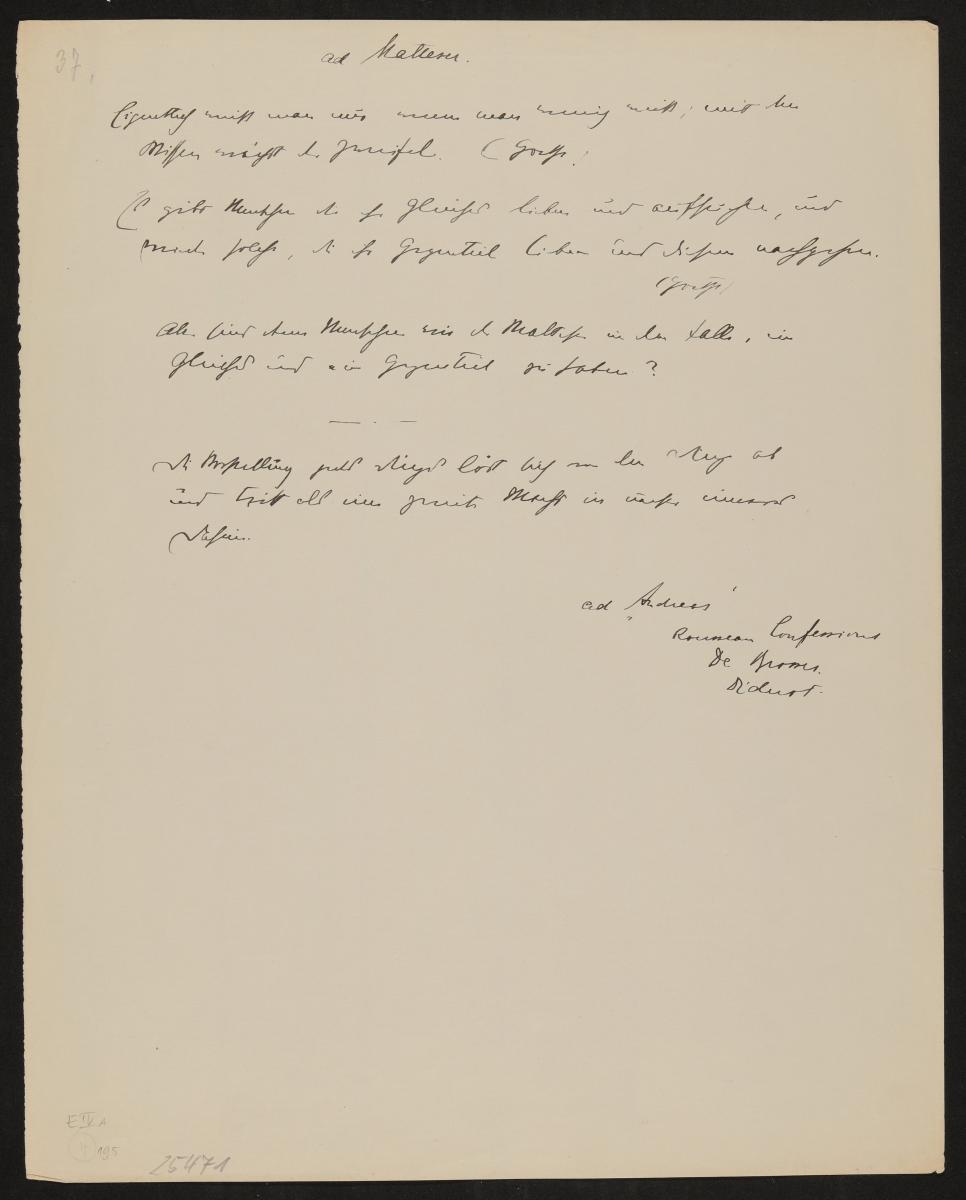 37,
ad Malteser.
Eigentlich weiß man nur wenn man wenig weiß; mit dem
Wissen wächst der Zweifel. (Goethe)
Es gibt Menschen die ihr Gleiches lieben und aufsuchen, und
wieder solche, die ihr Gegenteil lieben und diesem nachgehen.
(Goethe)
Aber sind denn Menschen wie der Malteser in dem Falle, ein
Gleiches und ein Gegenteil zu haben?
Die Vorstellung jedes Dinges löst sich von dem Ding ab
und tritt als eine zweite Macht in unser
Dasein.
ad "Andreas"
Rousseau Confessions
De Brosses.
Diderot.
E IV A
195
25471